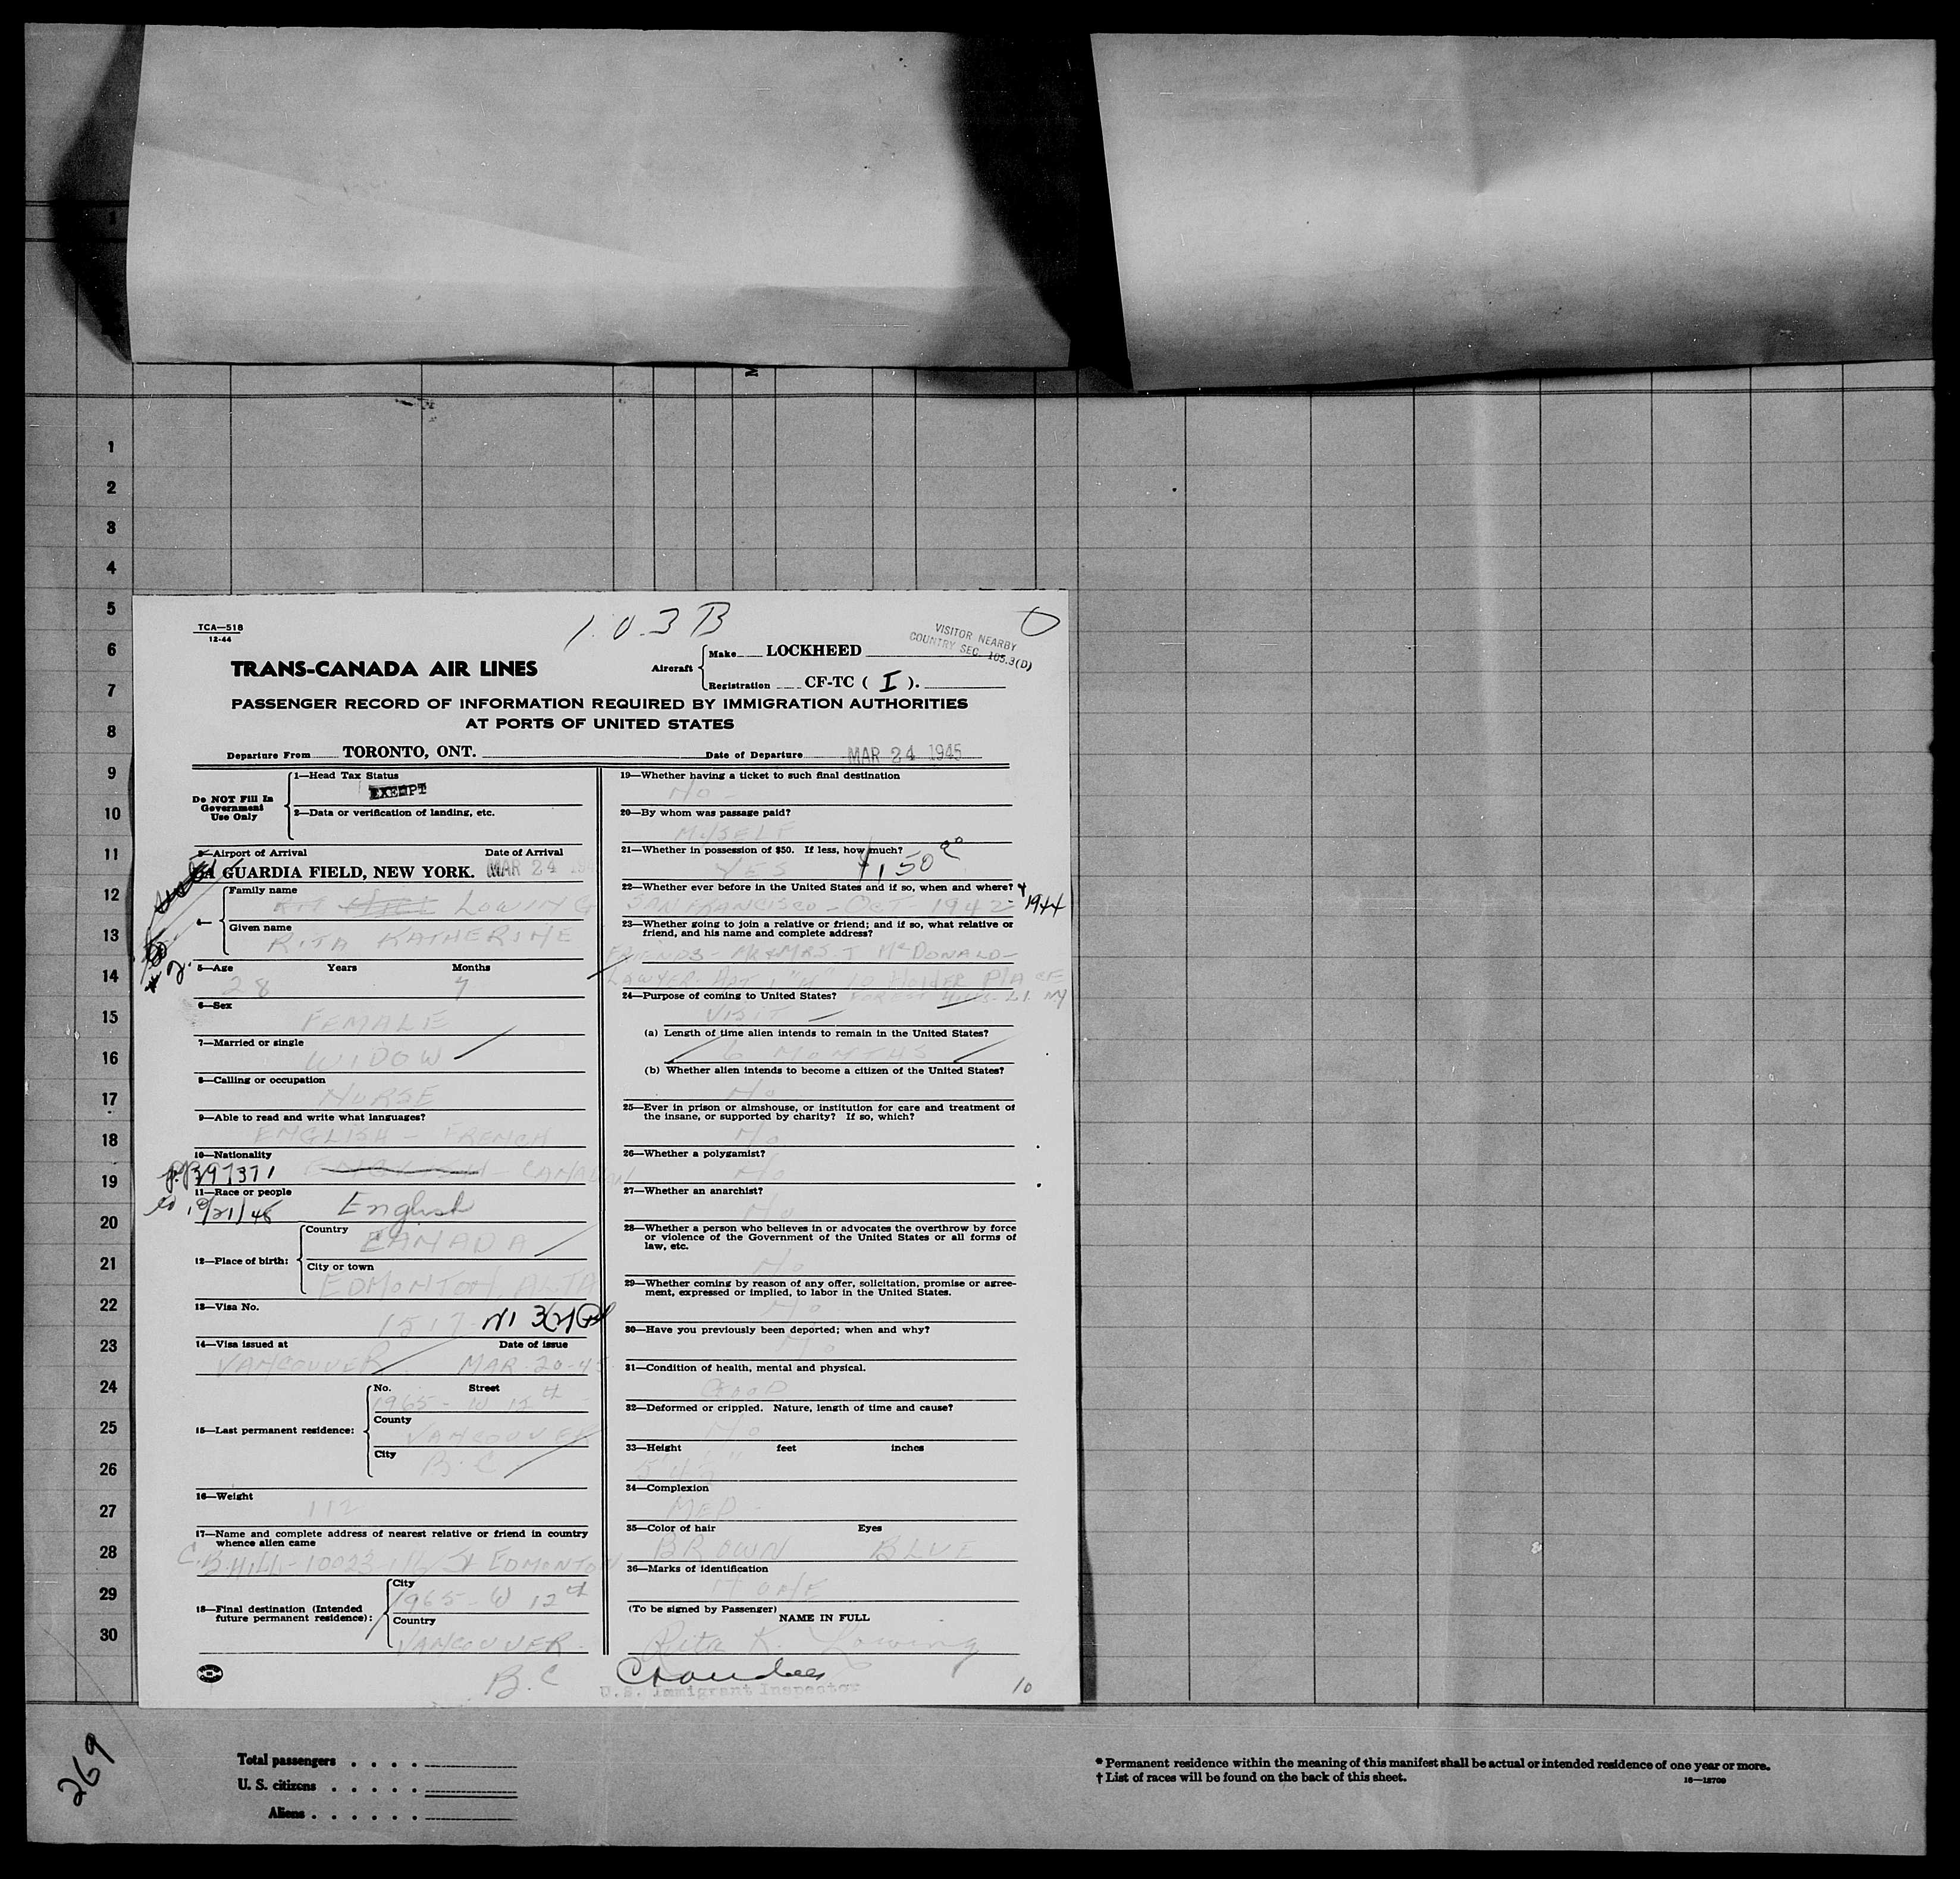 1
M
1
2
3
4
5
6
7
8
9
10
11
12
13
14
15
16
17
18
19
20
21
22
23
24
25
26
27
28
29
30
TCA—518
12-44
103B
VISITOR NEARBY
COUNTRY SEC. 105.3(D)
TRANS-CANADA AIR LINES
Aircraft
Make LOCKHEED
Registration CF-TC ( I ).
PASSENGER RECORD OF INFORMATION REQUIRED BY IMMIGRATION AUTHORITIES
AT PORTS OF UNITED STATES
Departure From TORONTO, ONT. Date of Departure MAR 24 1945
Do NOT Fill In
Government
Use Only
1—Head Tax Status
EXEMPT
2—Data or verification of landing, etc.
3—Airport of Arrival Date of Arrival
LA GUARDIA FIELD, NEW YORK. MAR 24
4—
Family name
LOWING
Given name
RITA KATHERINE
5—Age Years Months
28 7
6—Sex
FEMALE
7—Married or single
WIDOW
8—Calling or occupation
NURSE
9—Able to read and write what languages?
ENGLISH - FRENCH
10—Nationality
CANADIAN
11—Race or people
English
12—Place of birth:
Country
CANADA
City or town
EDMONTON, ALTA
13—Visa No.
1517
14—Visa issued at Date of issue
VANCOUVER MAR-20-45
15—Last permanent residence:
No. Street
1965 - W 12th
County
VANCOUVER
City
B.C
16—Weight
112
17—Name and complete address of nearest relative or friend in country
whence alien came
C.B. HILL - 10023 St EDMONTON
18—Final destination (Intended
future permanent residence):
City
1965 - W 12th
Country
VANCOUVER.
B.C
19—Whether having a ticket to such final destination
NO -
20—By whom was passage paid?
MYSELF
21—Whether in possession of $50. If less, how much?
YES
22—Whether ever before in the United States and if so, when and where?
SAN FRANCISCO - OCT - 1942 - 1944
23—Whether going to join a relative or friend; and if so, what relative or
friend, and his name and complete address?
FRIENDS - MR & MRS T McDONALD -
LAWYER APT 1 "H" 10 HOLDER PLACE
FOREST HILLS - L.I. NY
24—Purpose of coming to United States?
VISIT
(a) Length of time alien intends to remain in the United States?
6 MONTHS
(b) Whether alien intends to become a citizen of the United States?
No
25—Ever in prison or almshouse, or institution for care and treatment of
the insane, or supported by charity? If so, which?
No
26—Whether a polygamist?
No
27—Whether an anarchist?
No
28—Whether a person who believes in or advocates the overthrow by force
or violence of the Government of the United States or all forms of
law, etc.
No
29—Whether coming by reason of any offer, solicitation, promise or agree-
ment, expressed or implied, to labor in the United States.
No
30—Have you previously been deported; when and why?
No
31—Condition of health, mental and physical.
GOOD
32—Deformed or crippled. Nature, length of time and cause?
No
33—Height feet inches
34—Complexion
MED -
35—Color of hair Eyes
BROWN BLUE
36—Marks of identification
NONE
(To be signed by Passenger)
NAME IN FULL
Rita K. Lowing
U.S. Immigrant Inspector
10
269
Total passengers
U. S. citizens
Aliens
* Permanent residence within the meaning of this manifest shall be actual or intended residence of one year or more.
† List of races will be found on the back of this sheet. 16—18709